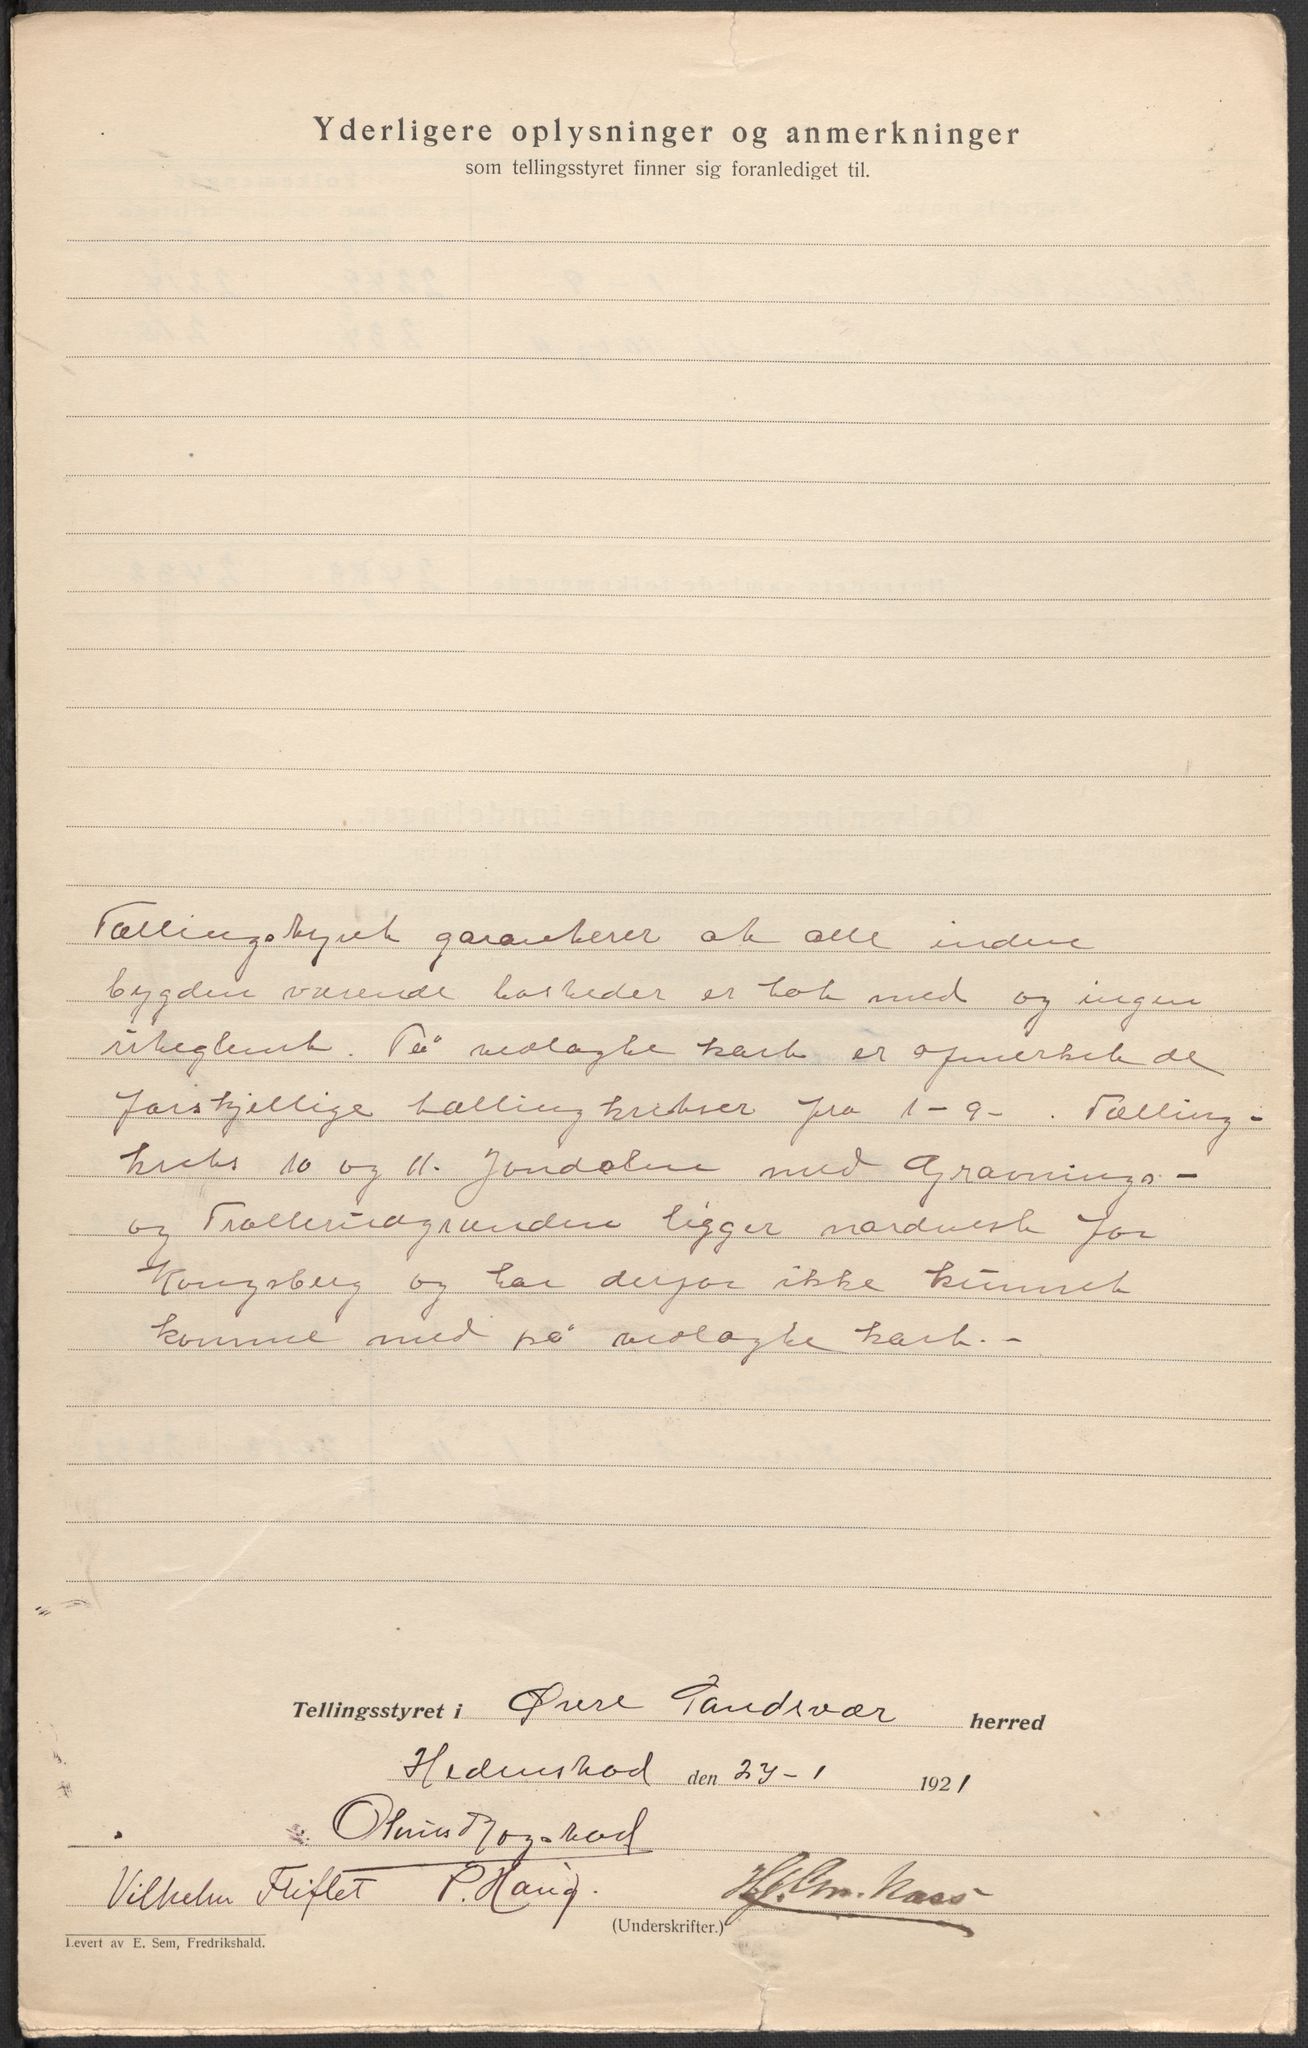 Yderligere oplysninger og anmerkninger
som tellingsstyret finner sig foranlediget til.
Tællingsstyret garanterer at alle inden
bygden værende bosteder er tat med og ingen
uteglemt. På vedlagte kart er opmerket de
forskjellige tællingskretser fra 1-9-. Tælling-
krets 10 og 11. Jondalen med Gravnings-
og Trollerudgrunden ligger nordvest for
Kongsberg og har derfor ikke kunnet
komme med på vedlagte kart.-
Tellingsstyret i Øvre Sandsvær herred
Hedenstad den 27-1 1921
Vilhelm Fliflet P. Haug.
(Underskrifter.)
Levert av E. Sem, Fredrikshald.